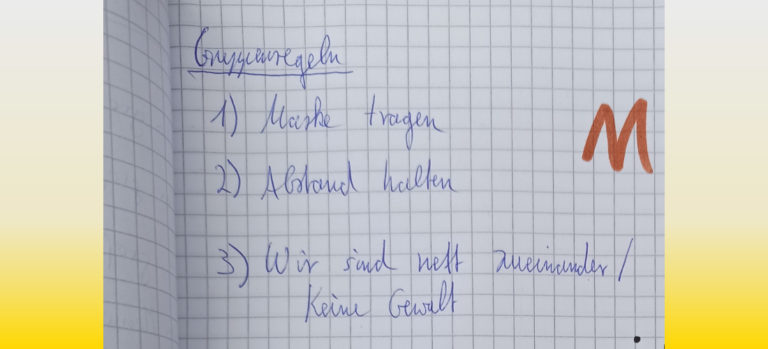 Gruppenregeln
1) Maske tragen
M
2) Abstand halten
3) Wir sind nett zueinander /
Keine Gewalt